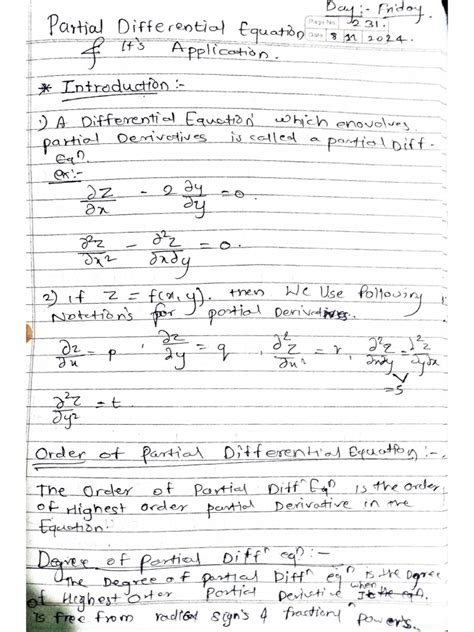 Day:- Friday.
Partial Differential Equation
Page No. 231.
Date 8 11 2024.
& It's Application.
* Introduction :-
1) A Differential Equation which enovolves
partial Derivatives is called a partial Diff.
Eqⁿ.
ex:-
∂z/∂x - 2 ∂y/∂y = 0.
∂²z/∂x² - ∂²z/∂x∂y = 0.
2) if z = f(x,y). then We Use following
Notation's for partial Derivatives.
∂z/∂x = p , ∂z/∂y = q , ∂²z/∂x² = r, ∂²z/∂x∂y = ∂²z/∂y∂x
=s
∂²z/∂y² = t.
Order of Partial Differential Equation :-
The Order of Partial Diffⁿ Eqⁿ is the order
of Highest order partial Derivative in the
Equation.
Degree of Partial Diffⁿ eqⁿ :-
The Degree of partial Diffⁿ eqⁿ is the Degree
of Highest Order Partial Derivative when the eqⁿ.
is free from radical sign's & fractional power's.